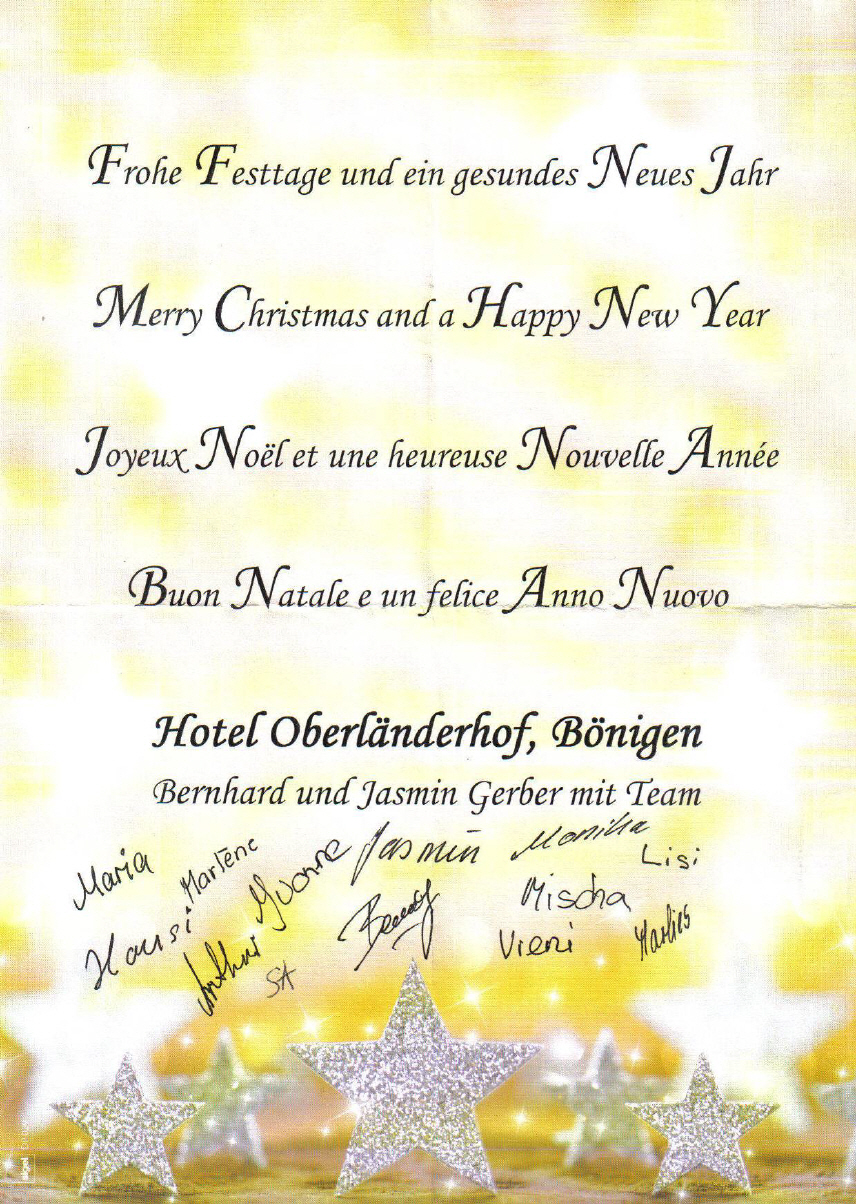 Frohe Festtage und ein gesundes Neues Jahr
Merry Christmas and a Happy New Year
Joyeux Noël et une heureuse Nouvelle Année
Buon Natale e un felice Anno Nuovo
Hotel Oberländerhof, Bönigen
Bernhard und Jasmin Gerber mit Team
Maria Marlène Yvonne Jasmin Monika Lisi
Hansi Arthur SA Mischa
Vreni Marlies
sigel